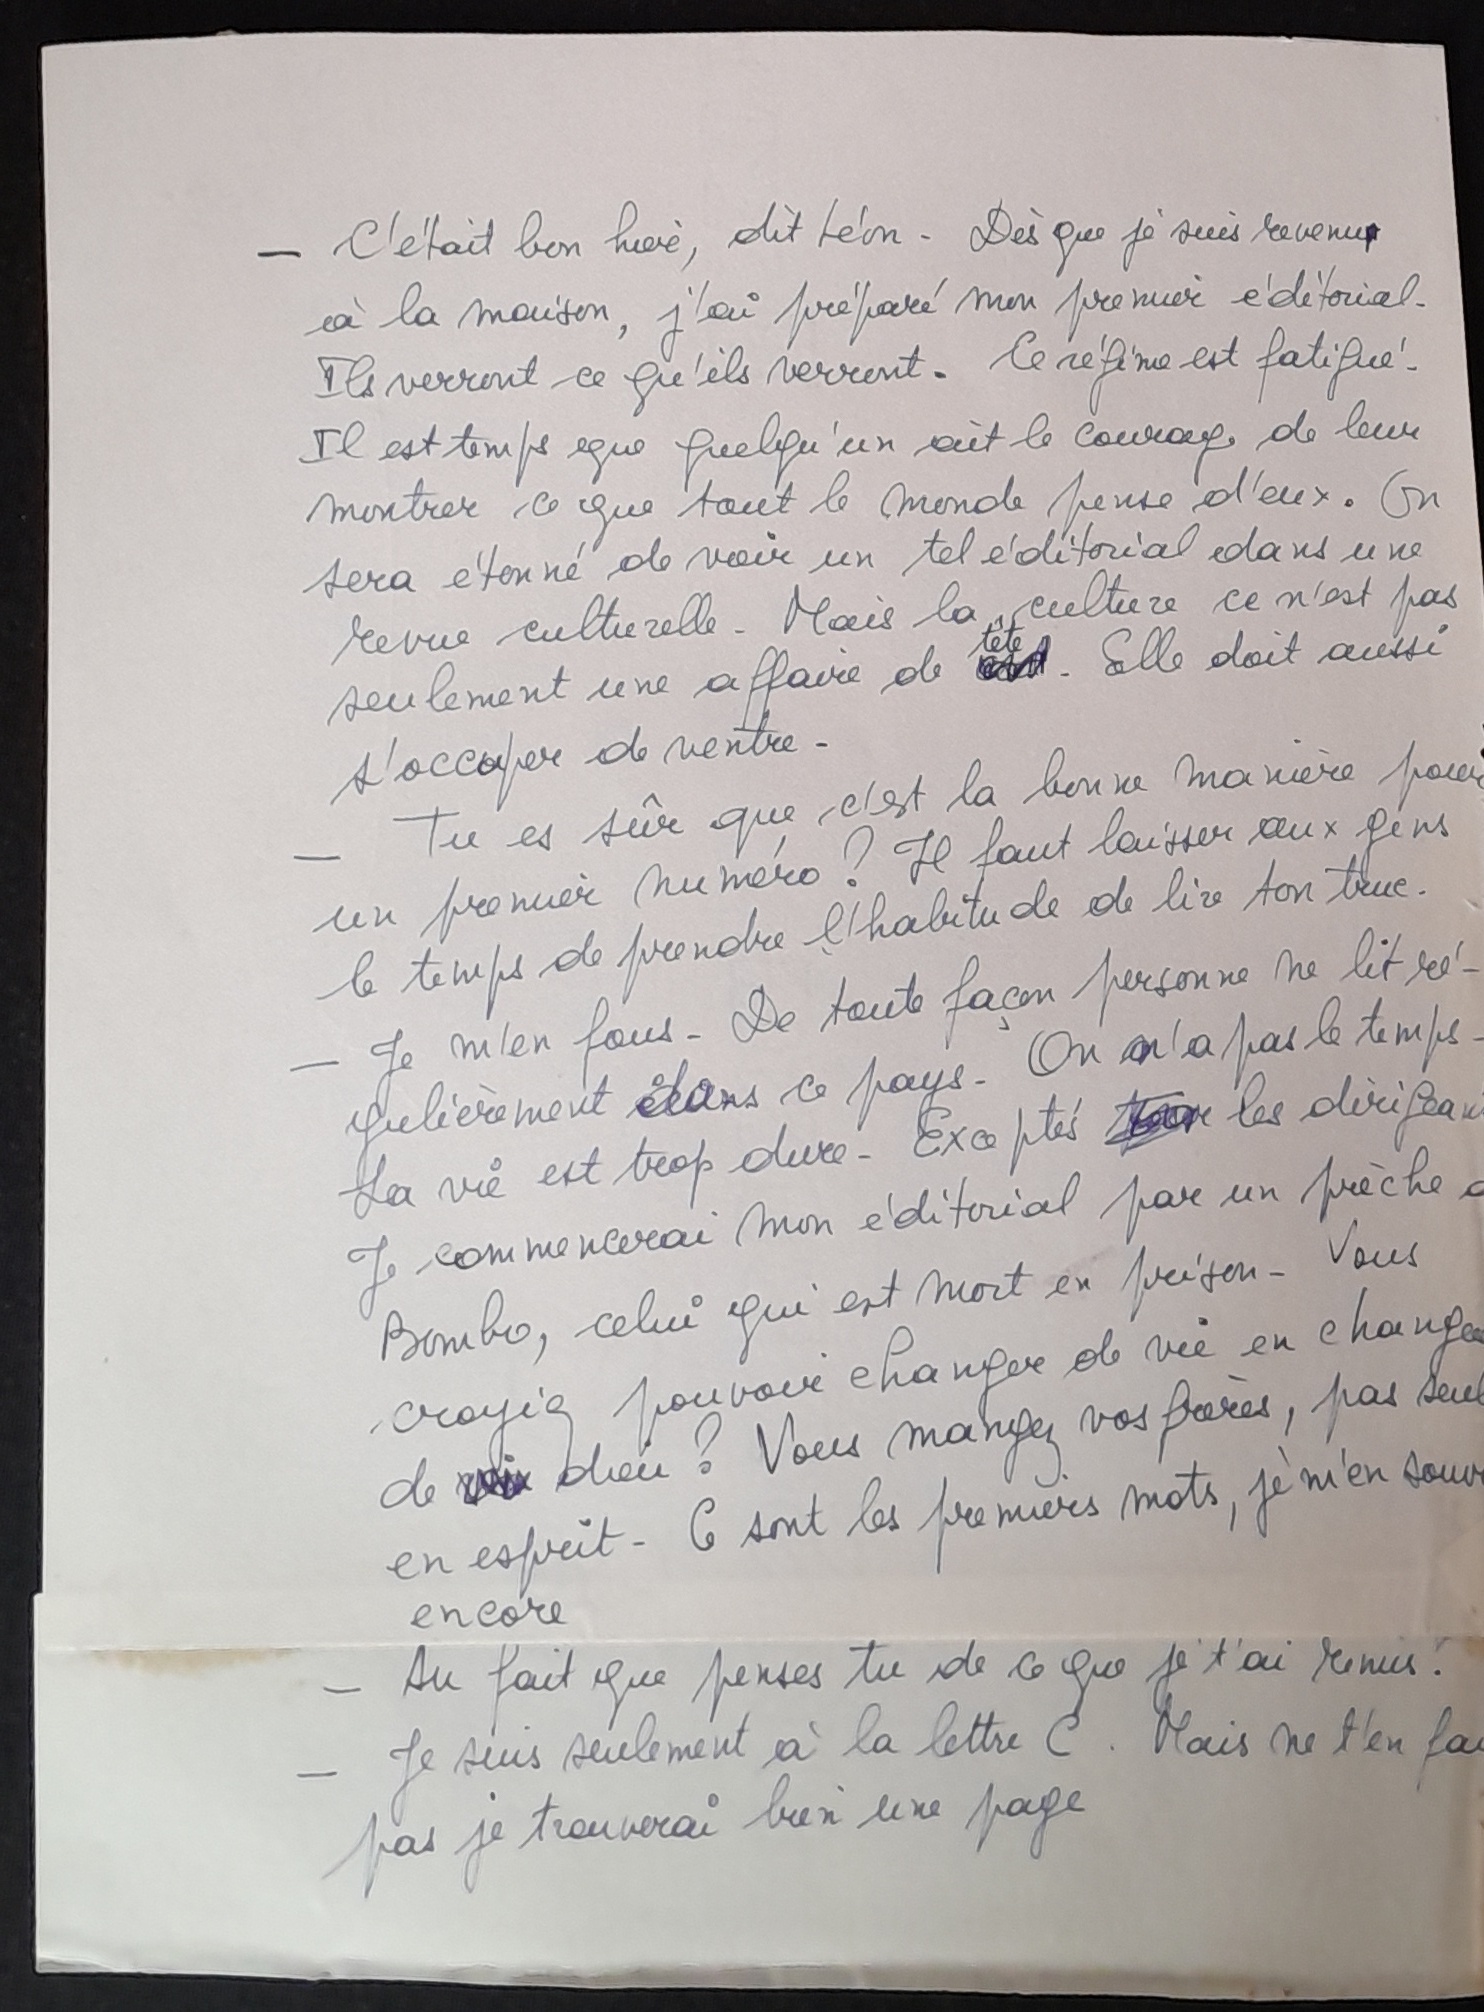 — C'était bon hier, dit Léon. Dès que je suis revenu
à la maison, j'ai préparé mon premier éditorial.
Ils verront ce qu'ils verront. Ce régime est fatigué.
Il est temps que quelqu'un ait le courage de leur
montrer ce que tout le monde pense d'eux. On
sera étonné de voir un tel éditorial dans une
revue culturelle. Mais la culture ce n'est pas
seulement une affaire de tête. Elle doit aussi
s'occuper de ventre.
— Tu es sûr que c'est la bonne manière pour
un premier numéro ? Il faut laisser aux gens
le temps de prendre l'habitude de lire ton truc.
— Je m'en fous. De toute façon personne ne lit ré-
gulièrement dans ce pays. On n'a pas le temps.
La vie est trop dure. Exceptés les dirigean
Je commencerai mon éditorial par un prêche d
Bombo, celui qui est mort en prison. Vous
croyiez pouvoir changer de vie en change
de dieu ? Vous mangez vos frères, pas seul
en esprit. Ce sont les premiers mots, je m'en souv
encore
— Au fait que penses tu de ce que je t'ai remis ?
— Je suis seulement à la lettre C. Mais ne t'en fai
pas je trouverai bien une page